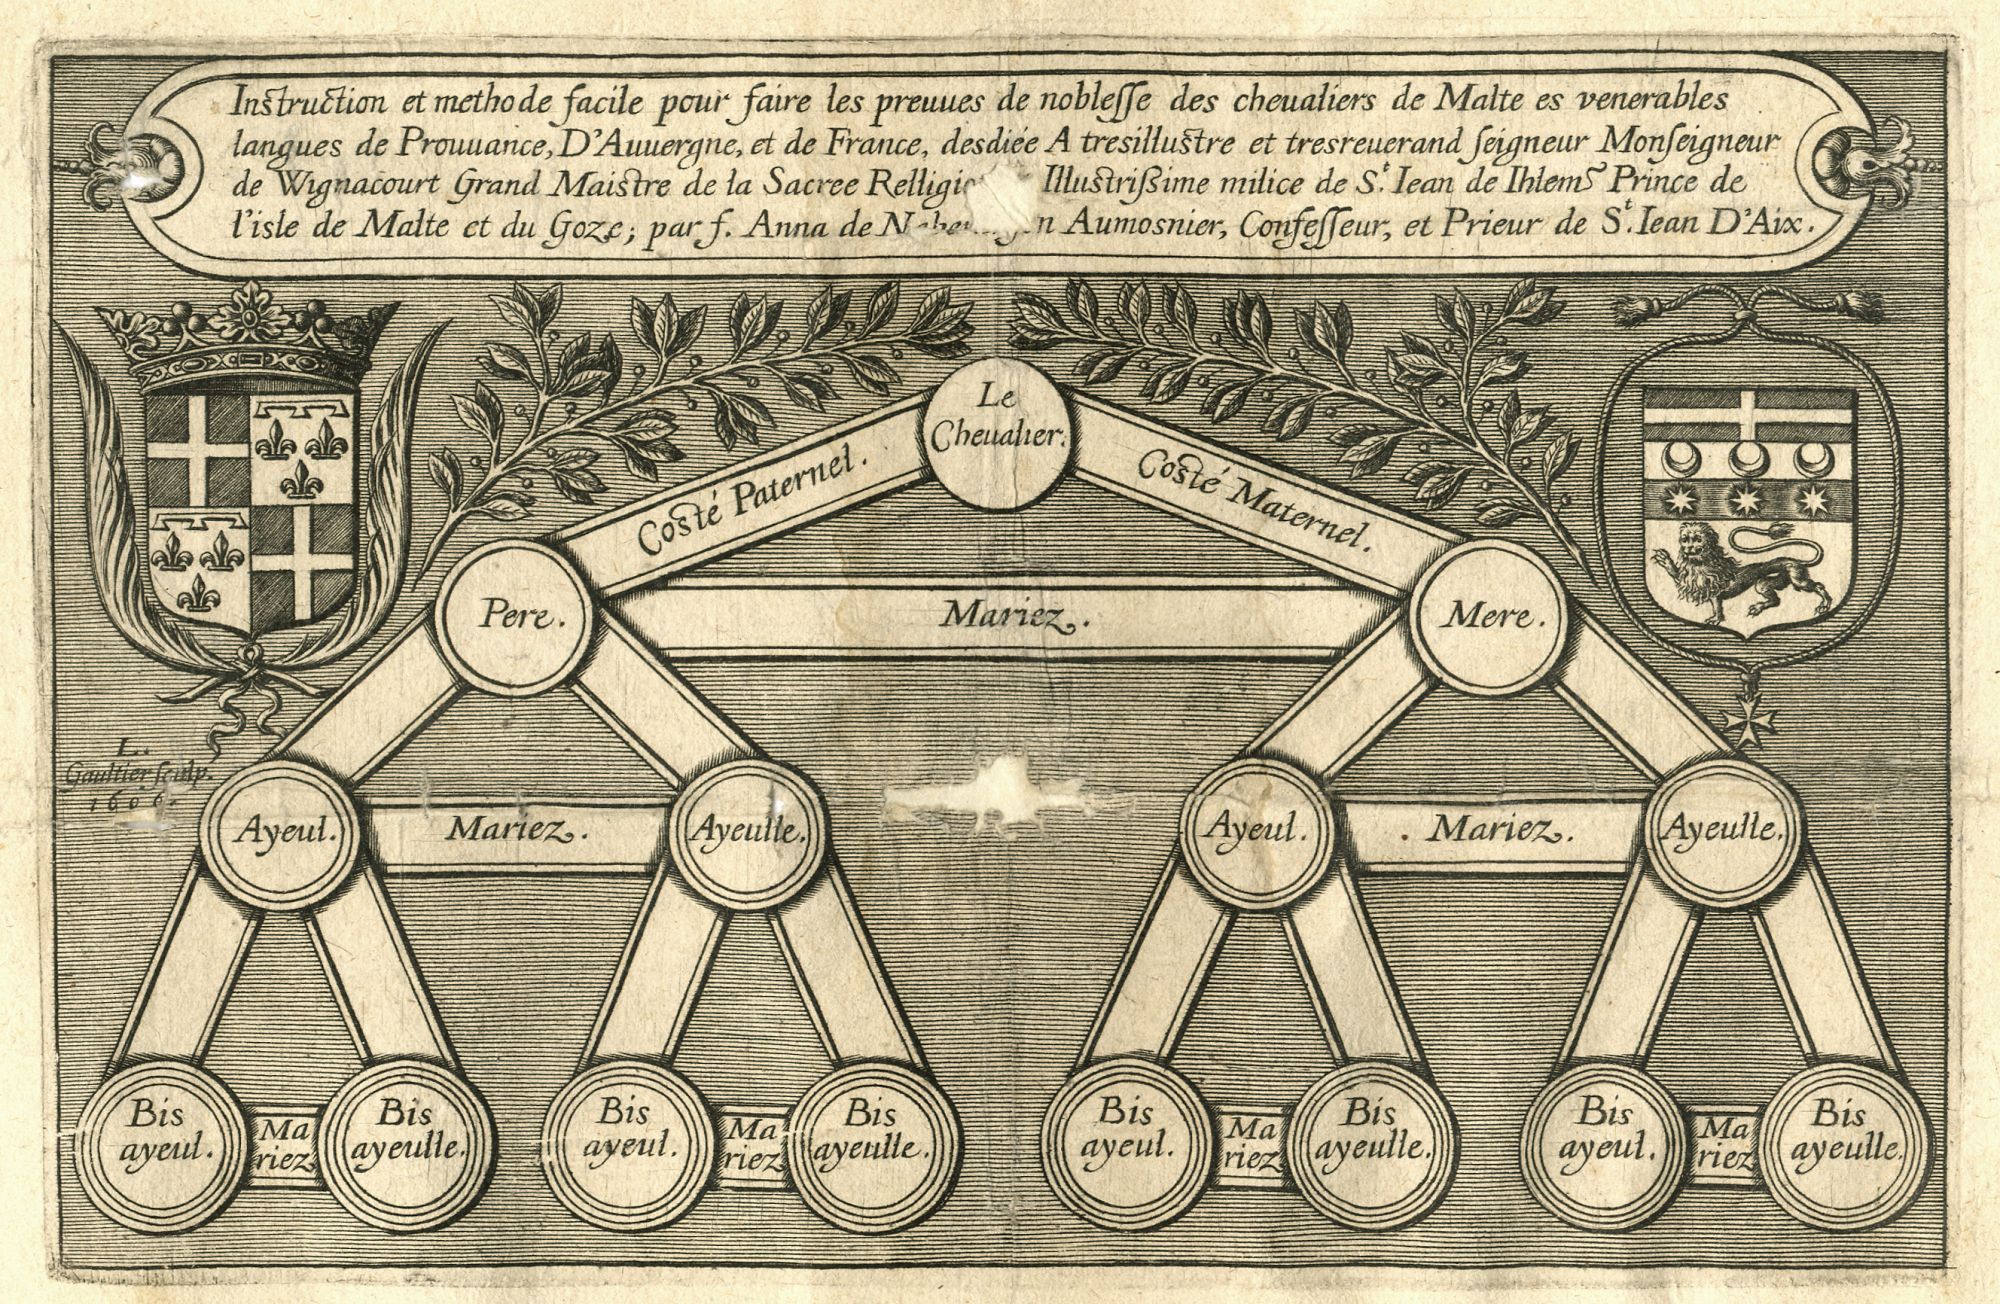 Instruction et methode facile pour faire les preuues de noblesse des cheualiers de Malte es venerables
langues de Prouuance, D'Auuergne, et de France, desdiée A tresillustre et tresreuerand seigneur Monseigneur
de Wignacourt Grand Maistre de la Sacree Illustrissime milice de St. Iean de Ihlems Prince de
l'isle de Malte et du Goze; par f. Anna de Aumosnier, Confesseur, et Prieur de St. Iean D'Aix.
Le
Cheualier.
Costé Paternel.
Costé Maternel.
Pere.
Mariez.
Mere.
L.
Gaultier sculp.
1606.
Ayeul.
Mariez.
Ayeulle.
Ayeul.
Mariez.
Ayeulle.
Bis
ayeul.
Ma
riez
Bis
ayeulle.
Bis
ayeul.
Ma
riez
Bis
ayeulle.
Bis
ayeul.
Ma
riez
Bis
ayeulle.
Bis
ayeul.
Ma
riez
Bis
ayeulle.